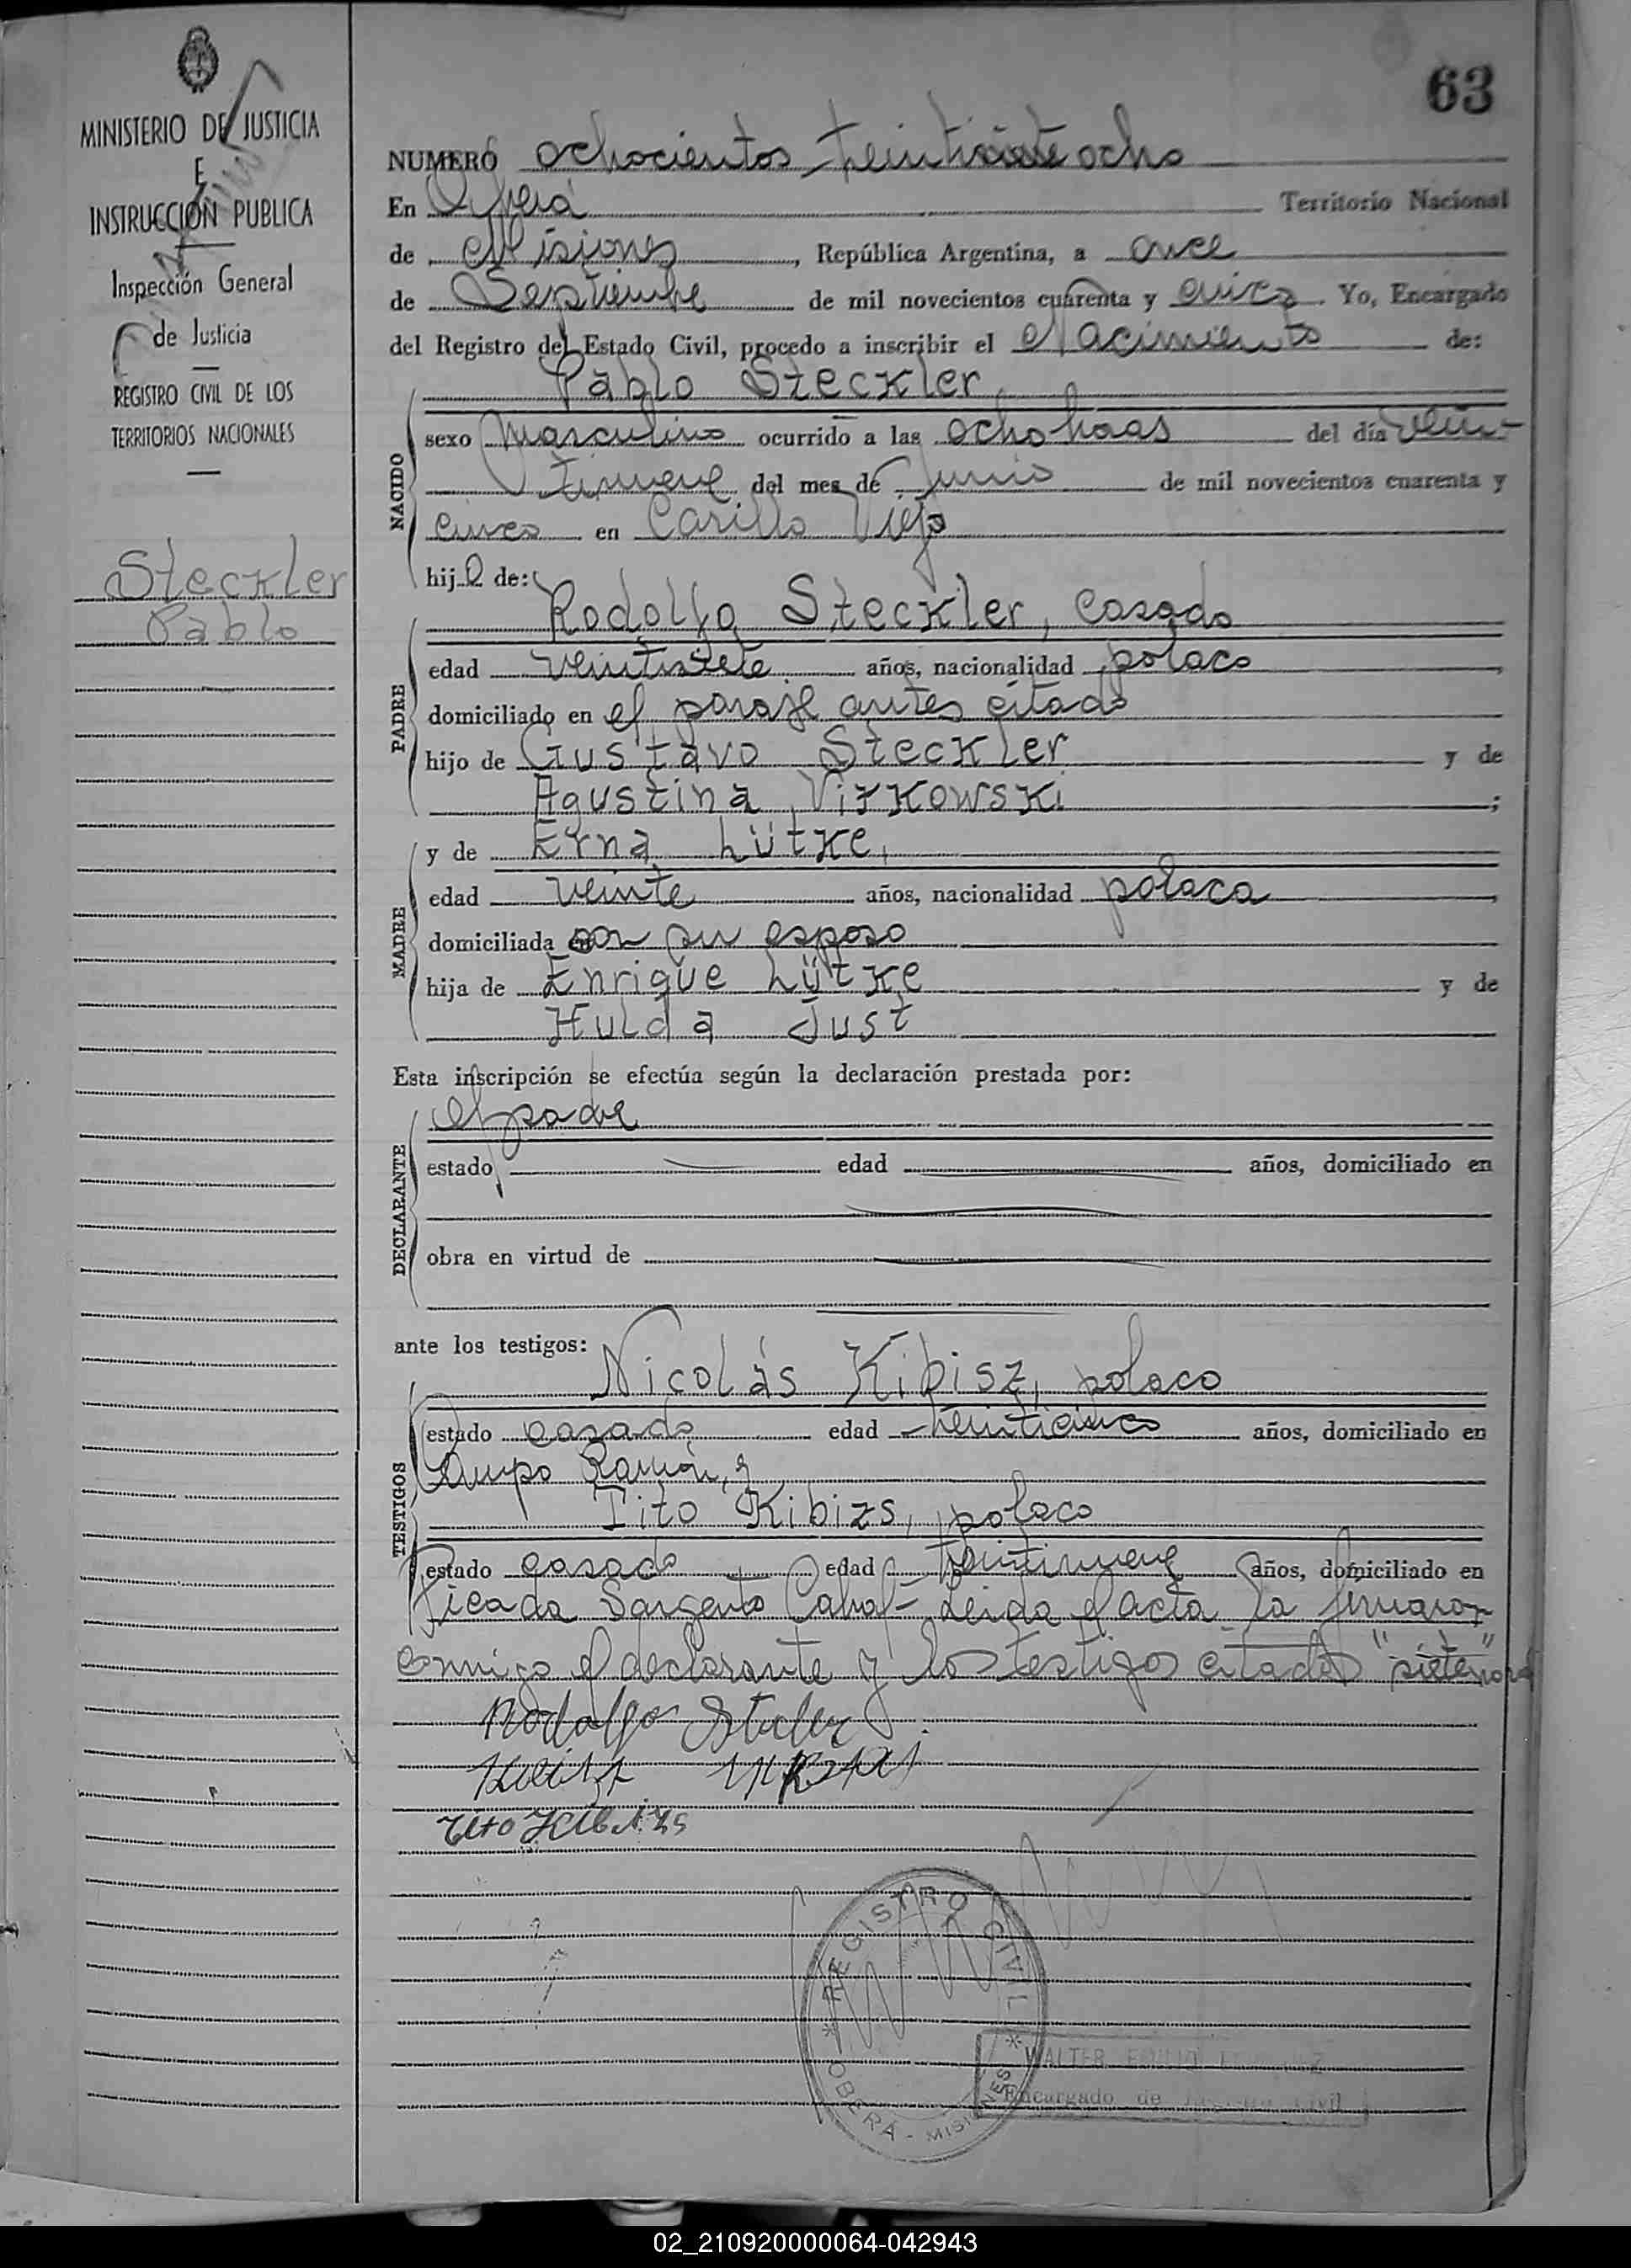 63
MINISTERIO DE JUSTICIA
E
INSTRUCCIÓN PUBLICA
Inspección General
de Justicia
REGISTRO CIVIL DE LOS
TERRITORIOS NACIONALES
Steckler
Pablo
NUMERO ochocientos ocho
En Oberá Territorio Nacional
de Misiones, República Argentina, a once
de Septiembre de mil novecientos cuarenta y cinco. Yo, Encargado
del Registro del Estado Civil, procedo a inscribir el Nacimiento de:
Pablo Steckler
NACIDO
sexo masculino ocurrido a las ocho horas del día vein-
tinueve del mes de Junio de mil novecientos cuarenta y
cinco en Cerillo Viejo
hijo de:
Rodolfo Steckler, casado
PADRE
edad veintisiete años, nacionalidad polaco
domiciliado en el paraje antes citado
hijo de Gustavo Steckler y de
Agustina Virkowski;
y de Erna Lütke,
MADRE
edad veinte años, nacionalidad polaca
domiciliada con su esposo
hija de Enrique Lütke y de
Hulda Just
Esta inscripción se efectúa según la declaración prestada por:
el padre
DECLARANTE
estado edad años, domiciliado en
obra en virtud de
ante los testigos:
Nicolás Kibisz, polaco
TESTIGOS
estado casado edad treinticinco años, domiciliado en
Campo Ramón, y
Tito Kibizs, polaco
estado casado edad treintinueve años, domiciliado en
Picada Sargento Cabral- Leida el acta la firmaron
conmigo el declarante y los testigos citados
Rodolfo Stekler
Tito Kibizs
REGISTRO CIVIL
* OBERÁ - MISIONES *
WALTER EMILIO
Encargado de Registro Civil
02_210920000064-042943